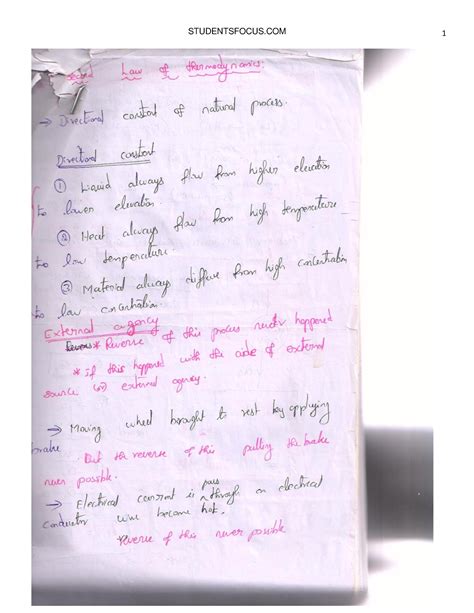 STUDENTSFOCUS.COM 1
Second Law of thermodynamics:
→ Directional constant of natural process.
Directional constant
① Liquid always flow from higher elevation
to lower elevation.
② Heat always flow from high temperature
to low temperature.
③ Material always diffuse from high concentration
to low concentration
External agency
* Reverse of this process never happened
* if this happened with the aide of external
source (or) external agency.
→ Moving wheel brought to rest by applying
brake. But the reverse of this pulling the brake
never possible.
→ Electrical current is pass through on electrical
conductor wire become hot.
reverse of this never possible